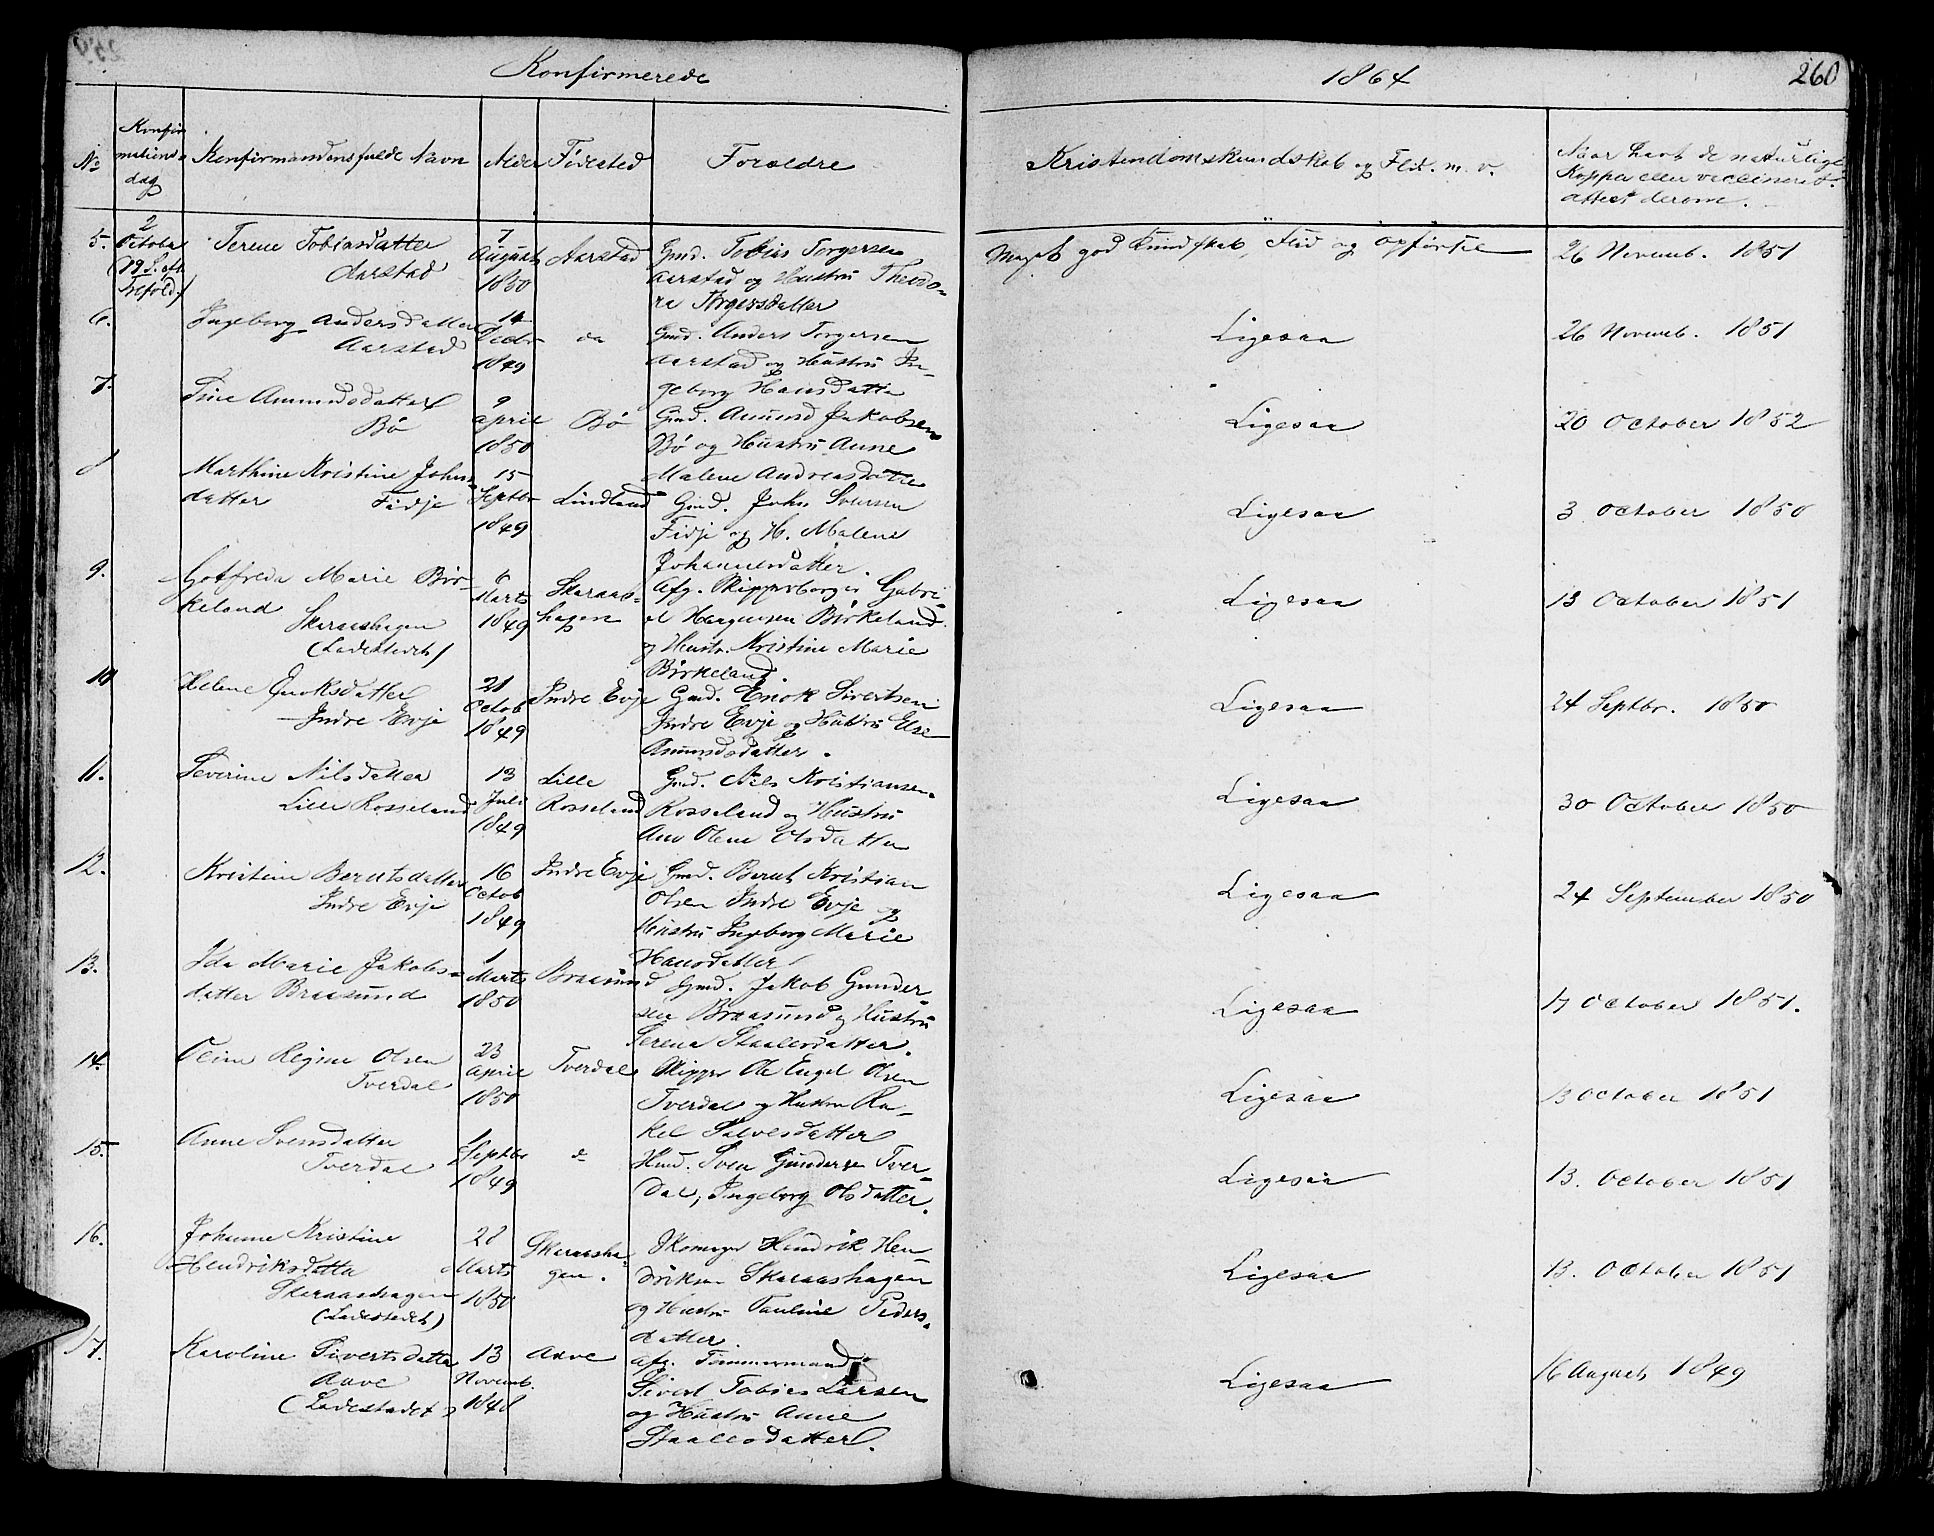 Konfirmerede
1864
260
No
Konfirmations dag
Konfirmandens fulde Navn
Alder
Födested
Foræeldre
Kristendomskundskab og Flid. m. v.
Naar havt de naturlige
Kopper eller vaccineret.
attest derom.
5.
2 October
(19 S. eft. Trefold.)
Terene Tobiasdatter
Aarstad
7 August 1850
Aarstad
Gmd. Tobias Torgersen
Aarstad og Hustru Theodo-
re Torgersdatter
Meget god Kundskab, Flid og opförsel
26 Novemb. 1851
6.
Ingeborg Andersdatter
Aarstad
14 Decbr 1849
do
Gmd. Anders Torgersen
Aarstad og Hustru In-
geborg Hansdatter
Ligesaa
26 Novemb. 1851
7.
Tine Amundsdatter
Bö
9 April 1850
Bö
Gmd. Amund Jakobsen
Bö og Hustru Anne
Malene Andreasdatter
Ligesaa
20 October 1852
8
Marthine Kristine Johns
datter Fidje
15 Septbr 1849
Lindland
Gmd. John Svensen
Fidje og H. Malene
Johannesdatter
Ligesaa
3 October 1850
9.
Gotfreda Marie Bir-
keland
Skaraashagen
(Ladestedet)
6 Marts 1849
Skaraas-
hagen
Afg. Skipperborger Gabri-
el Haagensen Birkeland
og Hustr. Kristine Marie
Birkeland.
Ligesaa
13 October 1851
10
Helene Enoksdatter
Indre Evje
21 Octob 1849
Indre Evje
Gmd. Enok Sivertsen
Indre Evje og Hustru Else
Amundsdatter.
Ligesaa
24 Septbr. 1850
11.
Severine Nilsdatter
Lille Rosseland
13 Juli 1849
Lille
Rosseland
Gmd. Nils Kristiansen
Rosseland og Hustru
Ane Olene Olsdatter
Ligesaa
30 October 1850
12.
Kristine Berntsdatter
Indre Evje
16 Octob 1849
Indre Evje
Gmd. Bernt Kristian
Olsen Indre Evje og
Hustru Ingeborg Marie
Hansdatter
Ligesaa
24 September 1850
13.
Ida Marie Jakobs-
datter Braasund
1 Marts 1850
Braasund
Gmd. Jakob Gunder-
sen Braasund og Hustru
Serena Staalesdatter.
Ligesaa
17 October 1851.
14.
Oline Regine Olsen
Tverdal
23 April 1850
Tverdal
Skipper Ole Engel Olsen
Tverdal og Hustru Ra-
kel Salvesdatter
Ligesaa
13 October 1851
15.
Anne Svensdatter
Tverdal
1 Septbr 1849
do
Hmd. Sven Gundersen Tver-
dal, Ingeborg Olsdatter.
Ligesaa
13. October 1851
16.
Johanne Kristine
Hendriksdatter
Skaraashagen
(Ladestedet)
28 Marts 1850
Skaraasha-
gen.
Skomager Hendrik Hen-
driksen Skaraashagen
og Hustru Pauline Peders-
datter
Ligesaa
13. October 1851
17.
Karoline Sivertsdatter
Aave
(Ladestedet)
13 Novemb. 1848
Aave
afg. Tömmermand
Sivert Tobias Larsen
og Hustru Anne
Staalesdatter.
Ligesaa
16 August 1849